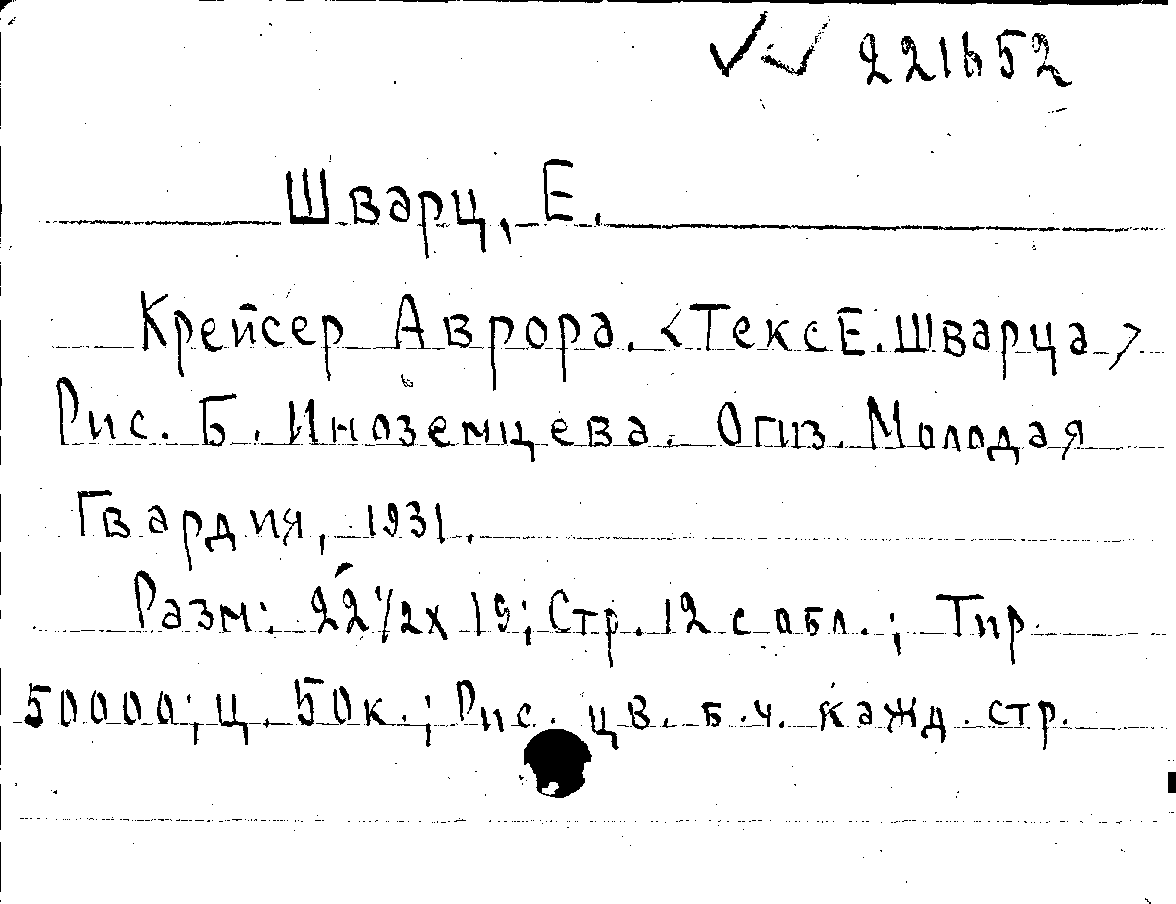 221652
Шварц, Е.
Крейсер Аврора. <Текс Е. Шварца>
Рис. Б. Иноземцева. Огиз. Молодая
Гвардия, 1931.
Разм: 22 1/2 х 19; Стр. 12 с обл.; Тир.
50000; ц. 50 к.; Рис. цв. б. ч. кажд. стр.